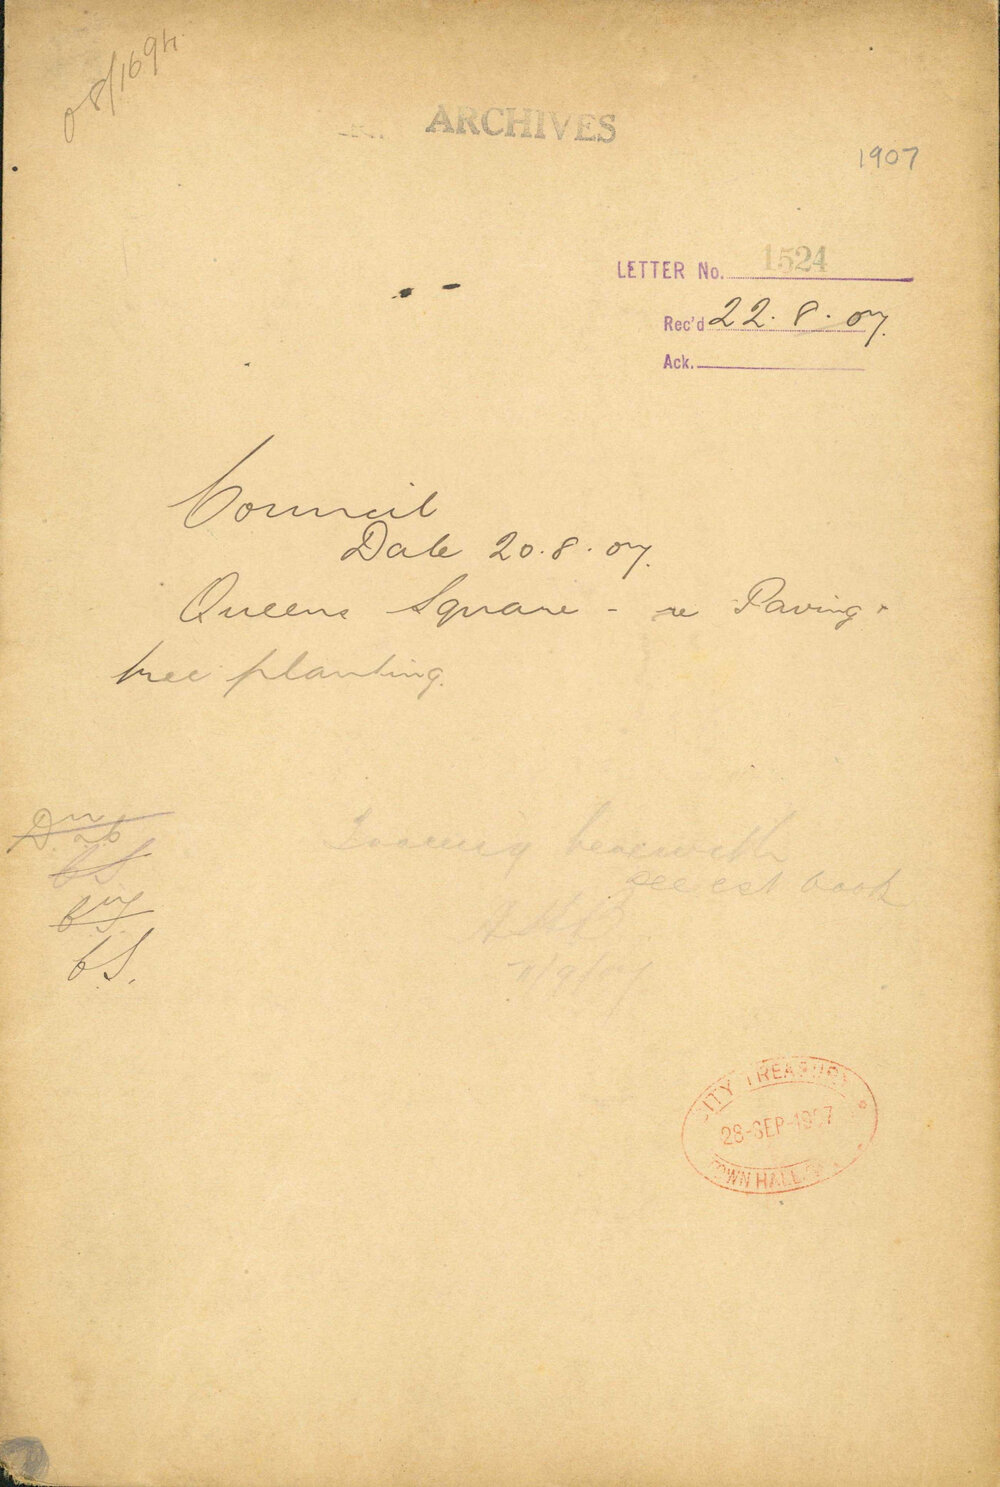 08/1694
ARCHIVES
1907
LETTER No. 1524
Rec'd 22.8.07.
Ack.
Council
Date 20.8.07.
Queens Square - re Paving.
tree planting.
herewith
see est book
11/9/07
CS
CS.
CITY TREASURY
28-SEP-1907
TOWN HALL